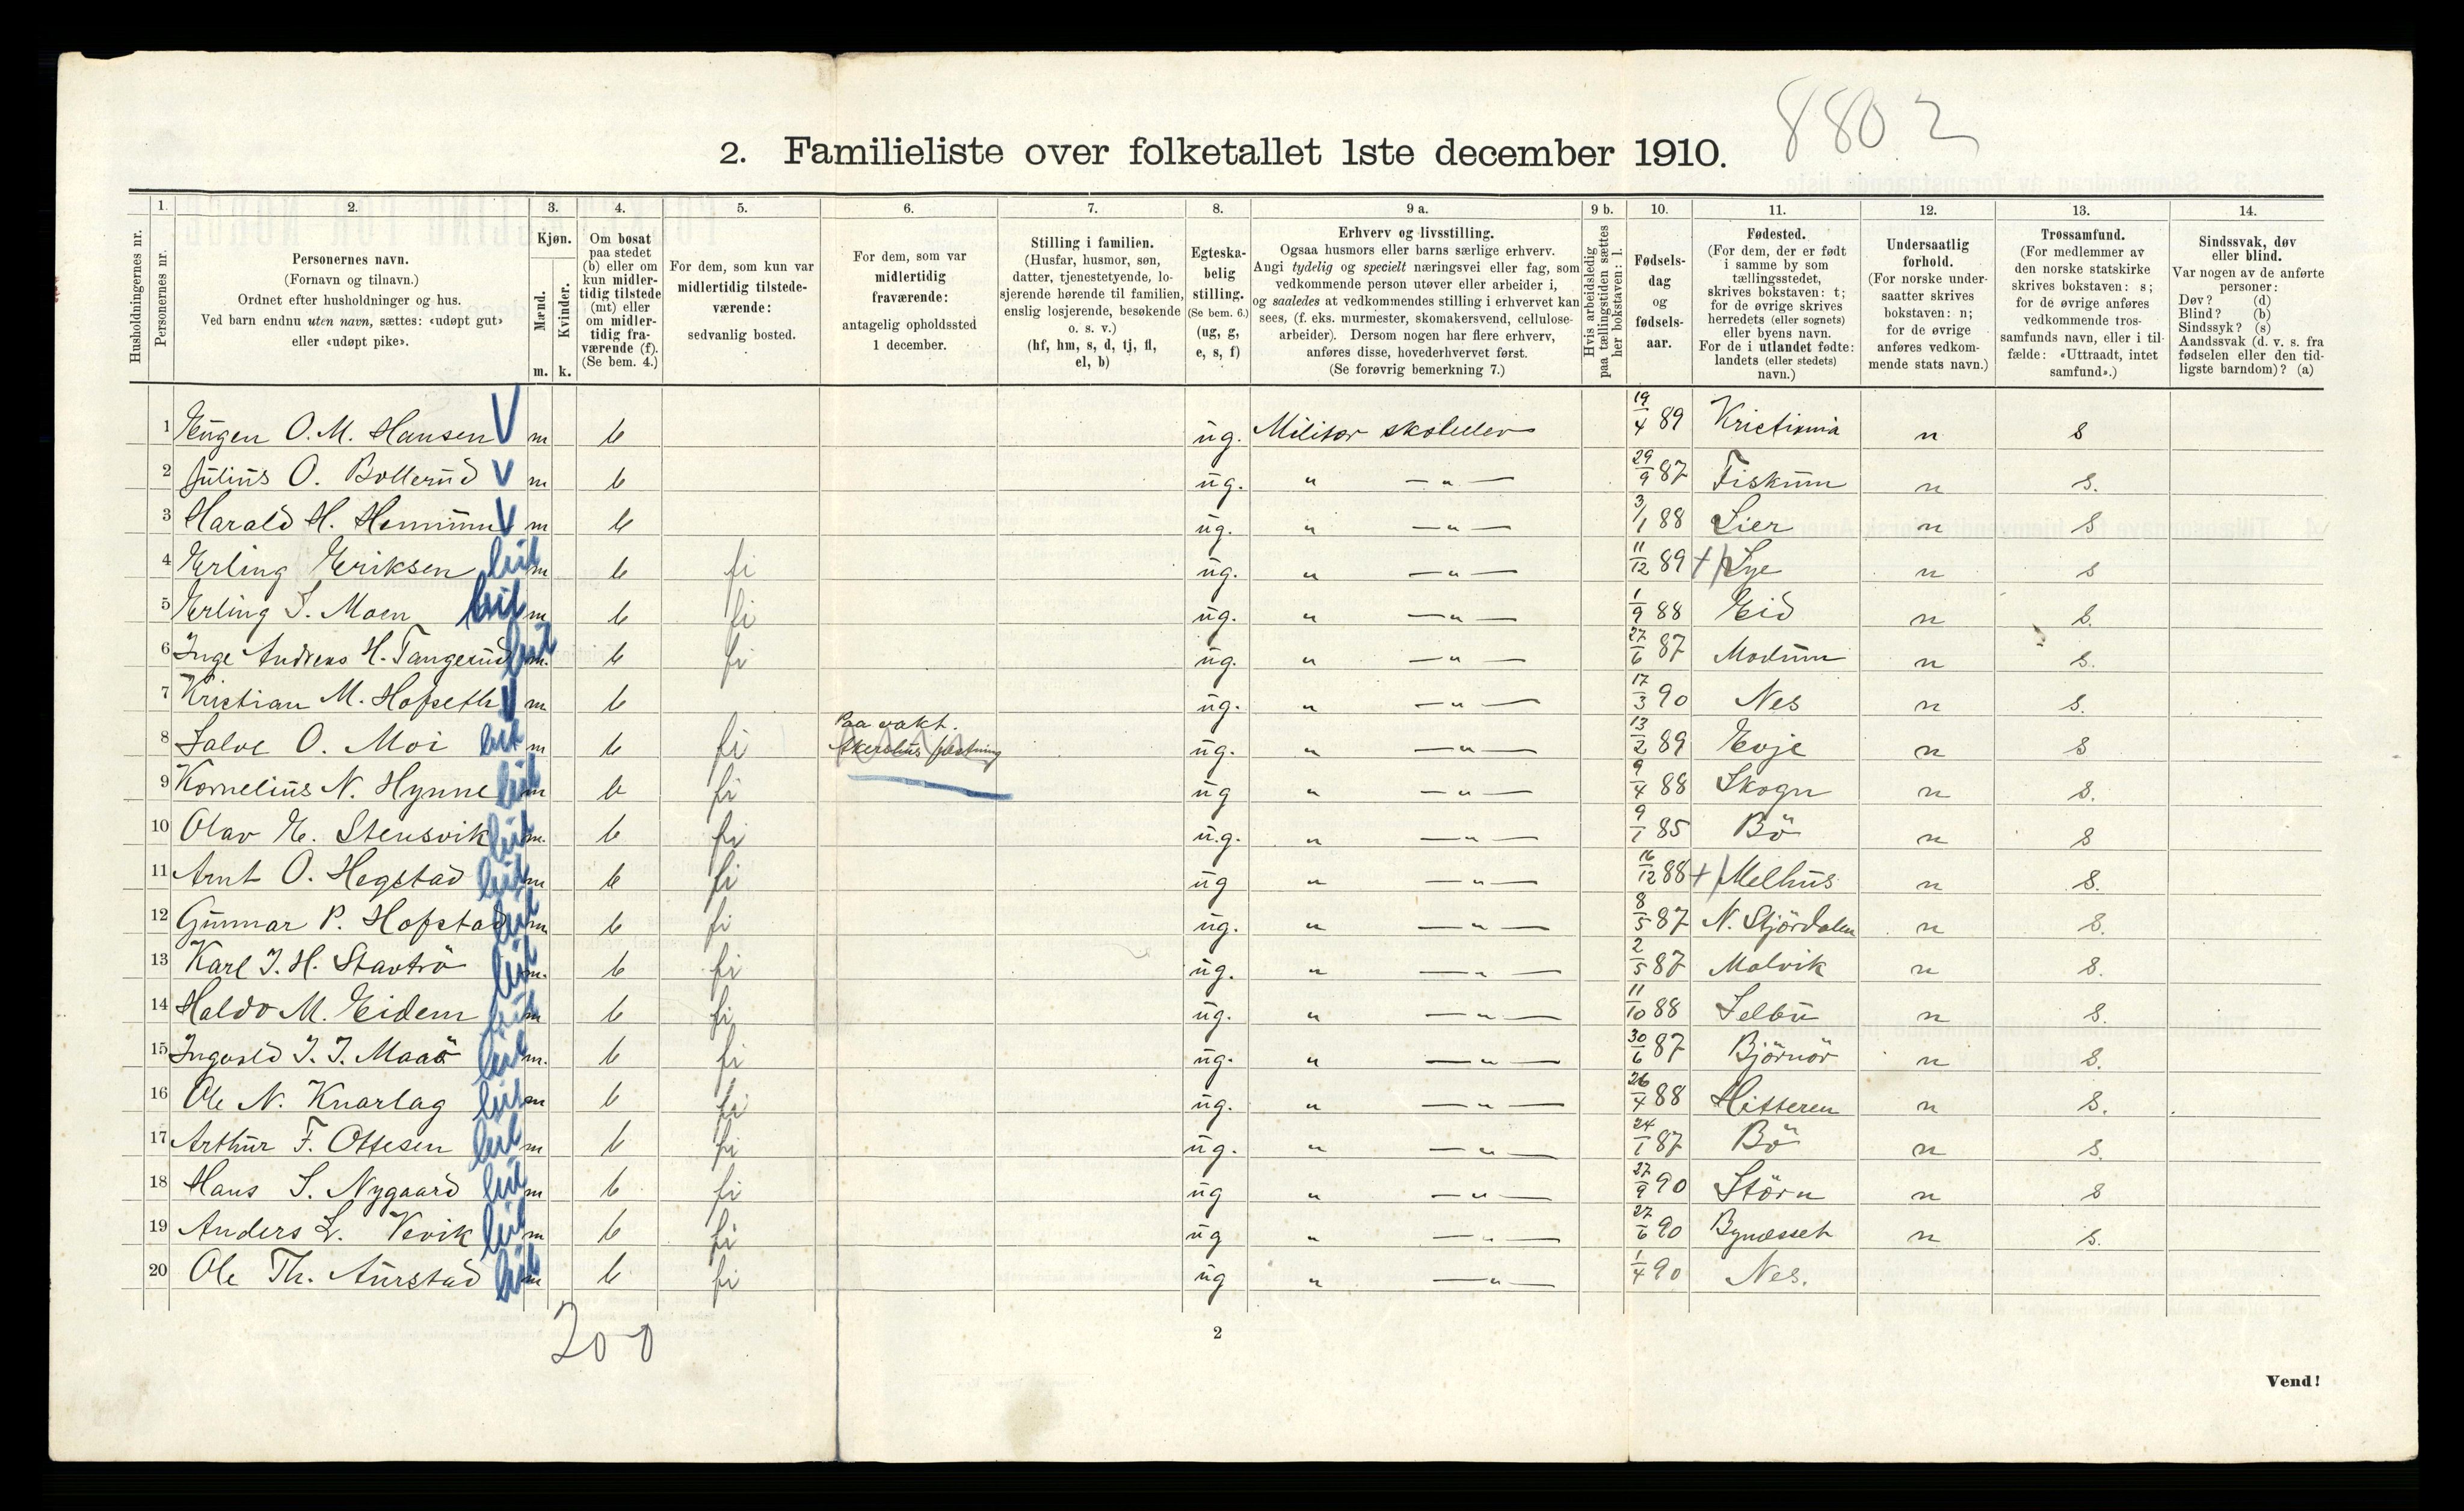 8802
2. Familieliste over folketallet 1ste december 1910.
Husholdningernes nr.
1. Personernes nr.
2. Personernes navn.
(Fornavn og tilnavn.)
Ordnet efter husholdninger og hus.
Ved barn endnu uten navn, sættes: «udøpt gut»
eller «udøpt pike».
3. Kjøn.
Mænd. m.
Kvinder. k.
4. Om bosat
paa stedet
(b) eller om
kun midler-
tidig tilstede
(mt) eller
om midler-
tidig fra-
værende (f).
(Se bem. 4.)
5. For dem, som kun var
midlertidig tilstede-
værende:
sedvanlig bosted.
6. For dem, som var
midlertidig
fraværende:
antagelig opholdssted
1 december.
7. Stilling i familien.
(Husfar, husmor, søn,
datter, tjenestetyende, lo-
sjerende hørende til familien,
enslig losjerende, besøkende
o. s. v.)
(hf, hm, s, d, tj, fl,
el, b)
8. Egteska-
belig
stilling.
(Se bem. 6.)
(ug, g,
e, s, f)
9 a. Erhverv og livsstilling.
Ogsaa husmors eller barns særlige erhverv.
Angi tydelig og specielt næringsvei eller fag, som
vedkommende person utøver eller arbeider i,
og saaledes at vedkommendes stilling i erhvervet kan
sees, (f. eks. murmester, skomakersvend, cellulose-
arbeider). Dersom nogen har flere erhverv,
anføres disse, hovederhvervet først.
(Se forøvrig bemerkning 7.)
9 b. Hvis arbeidsledig
paa tællingstiden sættes
her bokstaven: l.
10. Fødsels-
dag
og
fødsels-
aar.
11. Fødested.
(For dem, der er født
i samme by som
tællingsstedet,
skrives bokstaven: t;
for de øvrige skrives
herredets (eller sognets)
eller byens navn.
For de i utlandet fødte:
landets (eller stedets)
navn.)
12. Undersaatlig
forhold.
(For norske under-
saatter skrives
bokstaven: n;
for de øvrige
anføres vedkom-
mende stats navn.)
13. Trossamfund.
(For medlemmer av
den norske statskirke
skrives bokstaven: s;
for de øvrige anføres
vedkommende tros-
samfunds navn, eller i til-
fælde: «Uttraadt, intet
samfund».)
14. Sindssvak, døv
eller blind.
Var nogen av de anførte
personer:
Døv? (d)
Blind? (b)
Sindssyk? (s)
Aandssvak (d. v. s. fra
fødselen eller den tid-
ligste barndom)? (a)
1 Eugen O. M. Hansen V m b ug. Militær skoleelev 19/4 89 Kristiania n s
2 Julius O. Bollerud V m b ug. " — " — 29/9 87 Fiskum n s.
3 Harald H. V m b ug. " — " — 3/1 88 Lier n s
4 Erling Eriksen m b fi ug. " — " — 11/12 89 +/ Lye n s
5 Erling S. Moen m b fi ug. " — " — 1/9 88 Eid n s.
6 Inge Andreas H. Tangerud m. b fi ug. " — " — 27/6 87 Modum n s.
7 Kristian M. Hofseth V m b ug. " — " — 17/3 90 Nes n s.
8 Salve O. Moi m b fi Paa vakt. Akershus fæstning ug. " — " — 13/2 89 Evje n s
9 Kornelius N. Hynne m b fi ug " — " — 9/4 88 Skogn n s.
10 Olav E. Stensvik m. b fi ug. " — " — 9/1 85 Bö n s
11 Arnt O. Hegstad m b fi ug " — " — 16/12 88 +/ Melhus n s.
12 Gunnar P. Hofstad m. b fi ug. " — " — 8/5 87 N. Stjördalen n s.
13 Karl J. H. Stavtrö m. b fi ug. " — " — 2/5 87 Malvik n s.
14 Haldo M. Eidem m b fi ug. " — " — 11/10 88 Selbu n s.
15 Ingvald J. J. Maaö m. b fi ug. " — " — 30/6 87 Björnör n s.
16 Ole N. Knarlag m b fi ug. " — " — 26/4 88 Hitteren n s.
17 Arthur F. Ottesen m b fi ug. " — " — 24/1 87 Bö n s.
18 Hans S. Nygaard m b fi ug " — " — 27/9 90 Störn n s
19 Anders L. Vevik m b fi ug " — " — 27/6 90 Bynesset n s.
20 Ole Th. Aurstad m b fi ug " — " — 1/4 90 Nes.
20 0
2
Vend!